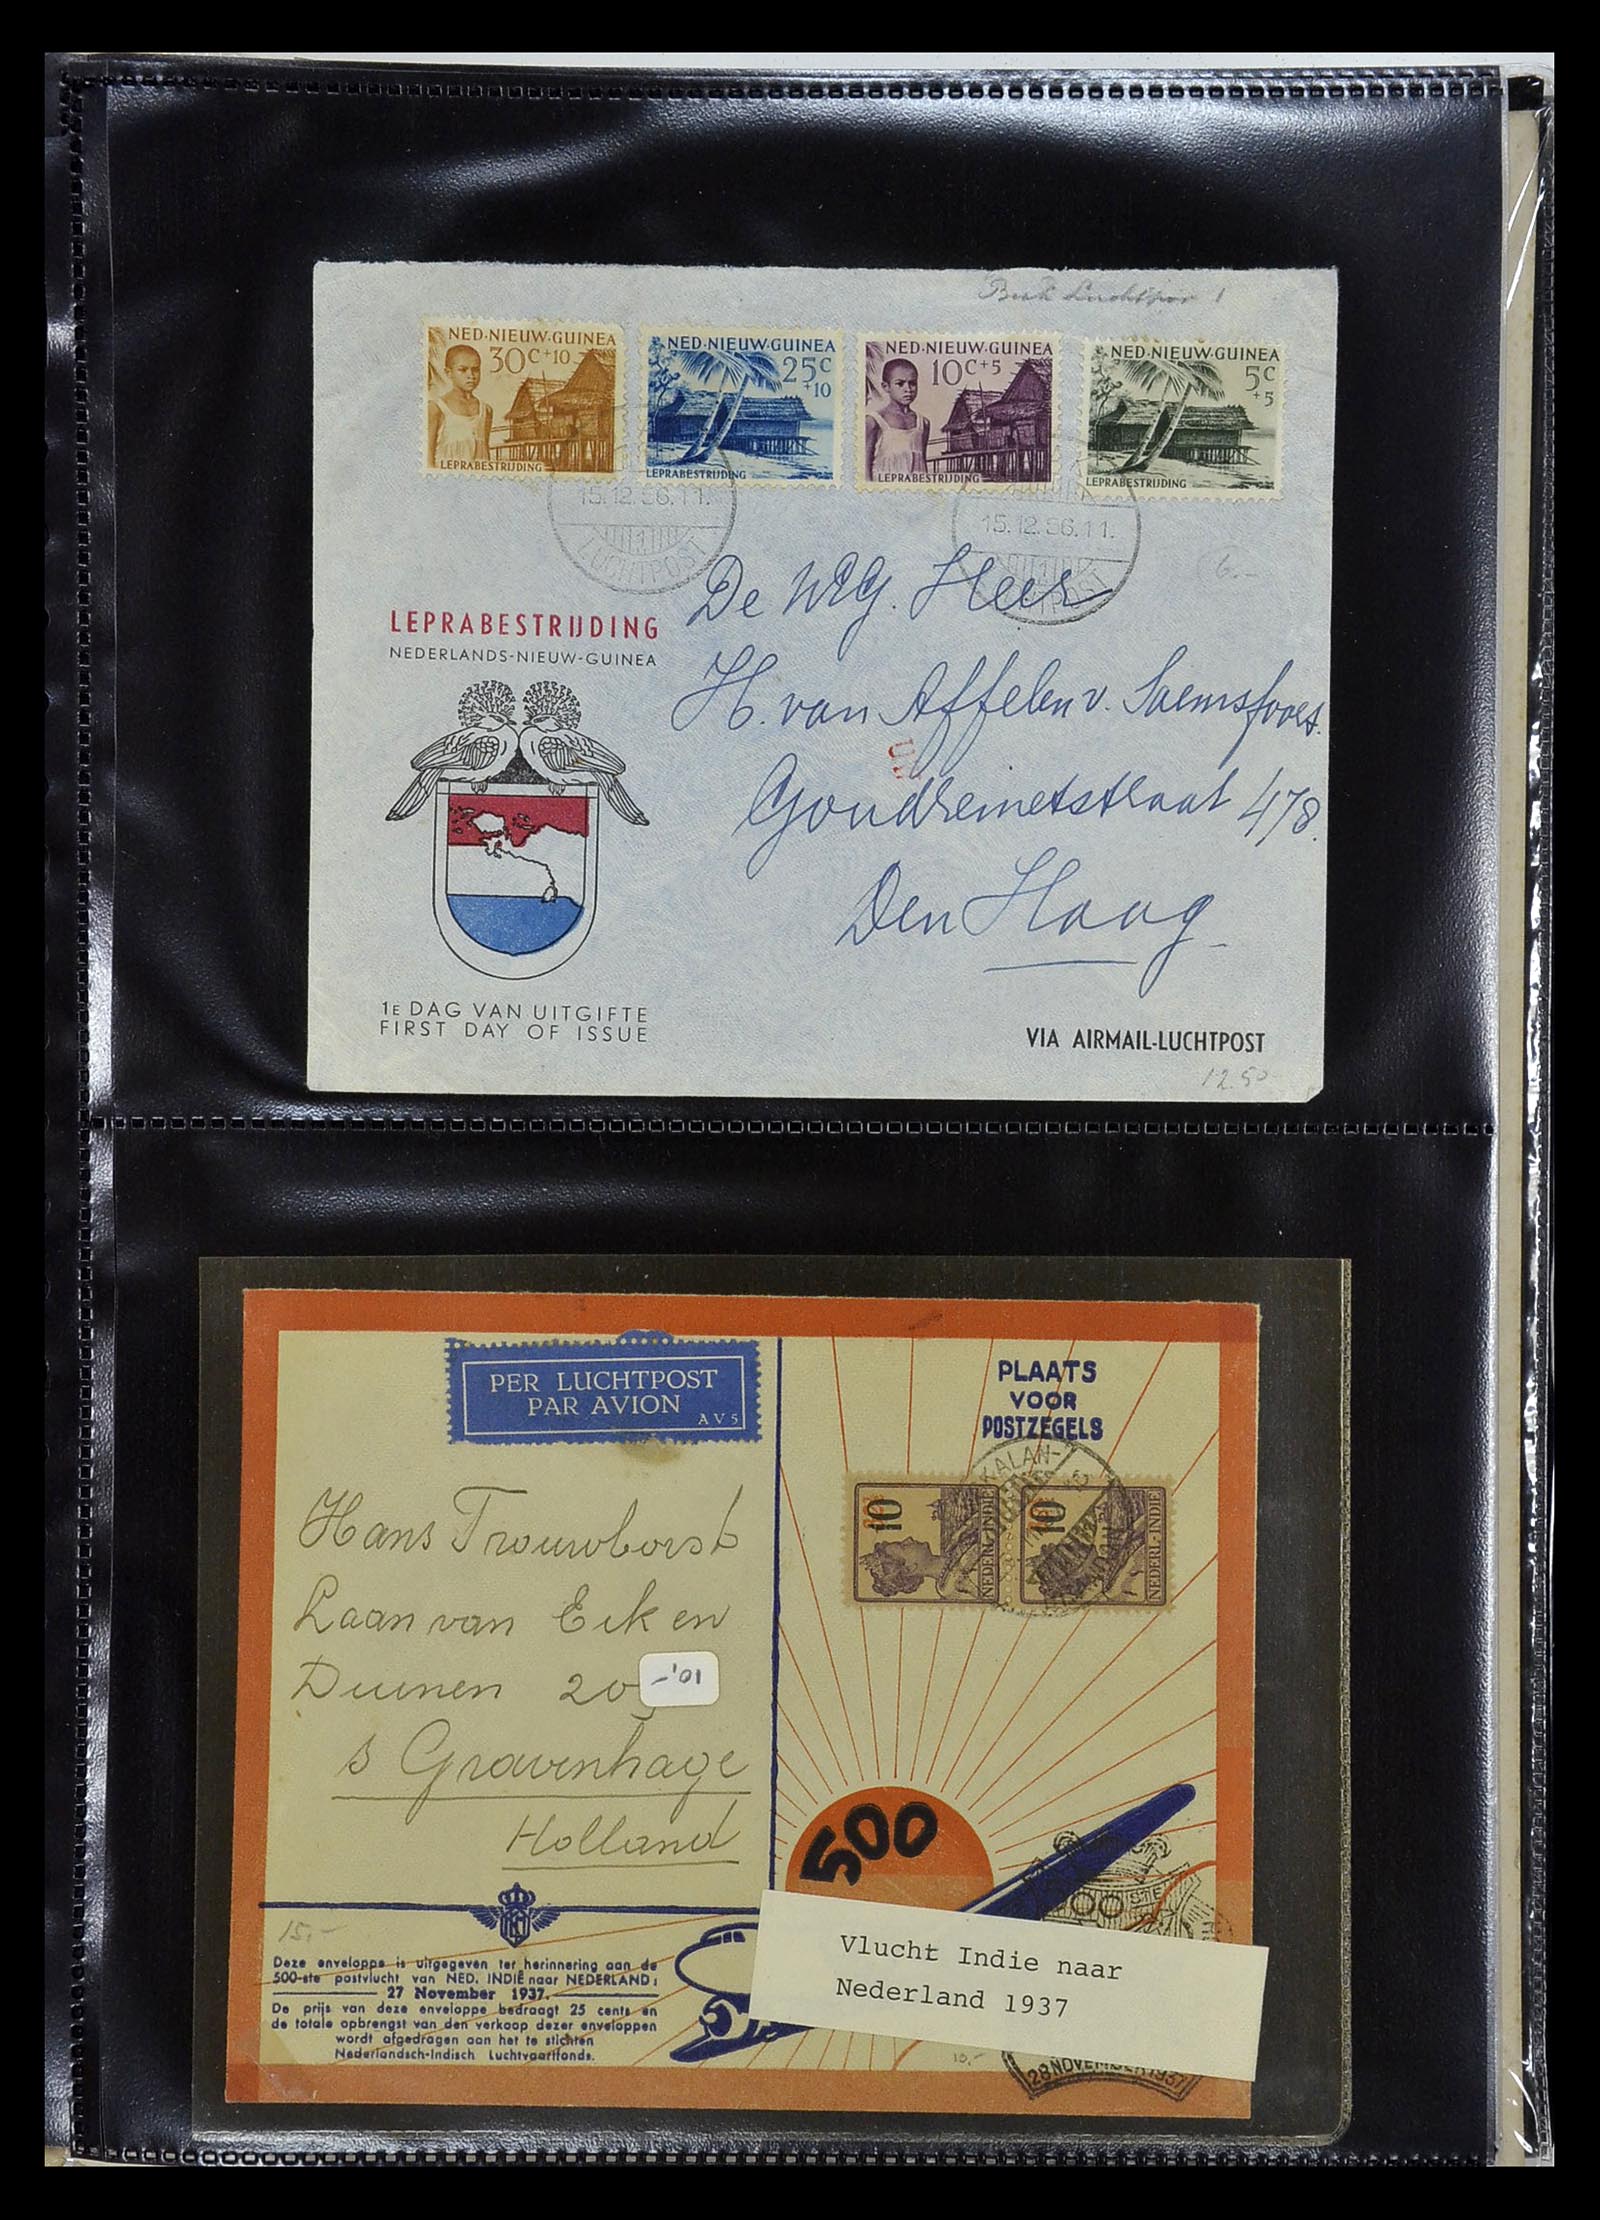 NED·NIEUW·GUINEA
30C+10
LEPRABESTRIJDING
NED·NIEUW·GUINEA
25C
+10
LEPRABESTRIJDING
NED·NIEUW·GUINEA
10C+5
LEPRABESTRIJDING
NED·NIEUW·GUINEA
5C
+5
LEPRABESTRIJDING
15.12.56.11.
LUCHTPOST
15.12.56.11.
6.-
De Heer
H. van Affelen v.
478
Den Haag
LEPRABESTRIJDING
NEDERLANDS-NIEUW-GUINEA
1E DAG VAN UITGIFTE
FIRST DAY OF ISSUE
VIA AIRMAIL-LUCHTPOST
12.50
PER LUCHTPOST
PAR AVION
AV5
PLAATS
VOOR
POSTZEGELS
10
NEDERL-INDIE
10
NEDERL-INDIE
Hans Trouwborst
Laan van Eik en
Duinen 20
10,-
s Gravenhage
Holland
500
15,-
Deze enveloppe is uitgegeven ter herinnering aan de
500-ste postvlucht van NED. INDIË naar NEDERLAND:
27 November 1937.
De prijs van deze enveloppe bedraagt 25 cents en
de totale opbrengst van den verkoop dezer enveloppen
wordt afgedragen aan het te stichten
Nederlandsch-Indisch Luchtvaartfonds.
Vlucht Indie naar
Nederland 1937
28 NOVEMBER 1937